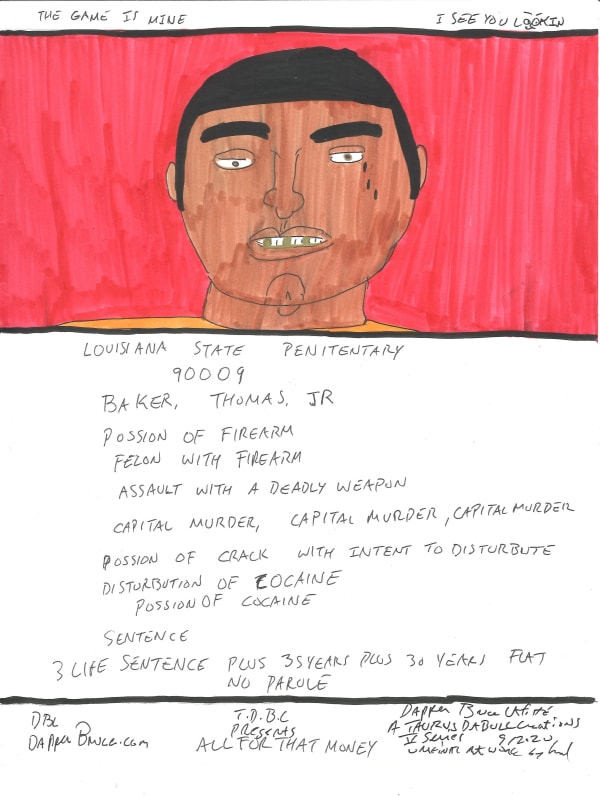 THE GAME IS MINE
I SEE YOU LOOKIN
LOUISIANA STATE PENITENTARY
90009
BAKER, THOMAS, JR
POSSION OF FIREARM
FELON WITH FIREARM
ASSAULT WITH A DEADLY WEAPON
CAPITAL MURDER, CAPITAL MURDER, CAPITAL MURDER
POSSION OF CRACK WITH INTENT TO DISTURBUTE
DISTURBUTION OF COCAINE
POSSION OF COCAINE
SENTENCE
3 LIFE SENTENCE PLUS 35 YEARS PLUS 30 YEARS FLAT
NO PAROLE
DBL
DAPPER BRUCE.COM
T.D.B.C
PRESENTS
ALL FOR THAT MONEY
DAPPER BRUCE
A TAURUS DABULL CREATIONS
V SERIES 9/2020